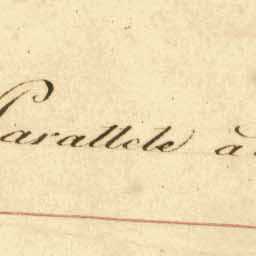 Parallele à